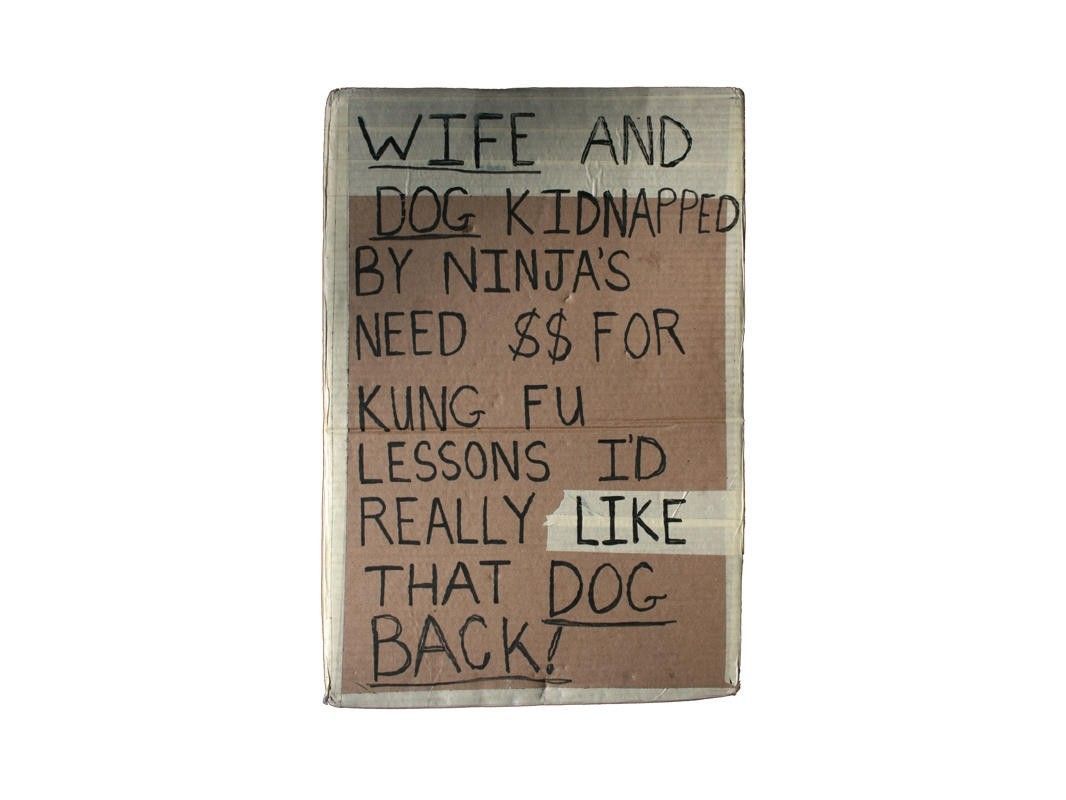 WIFE AND
DOG KIDNAPPED
BY NINJA'S
NEED $$ FOR
KUNG FU
LESSONS I'D
REALLY LIKE
THAT DOG
BACK!